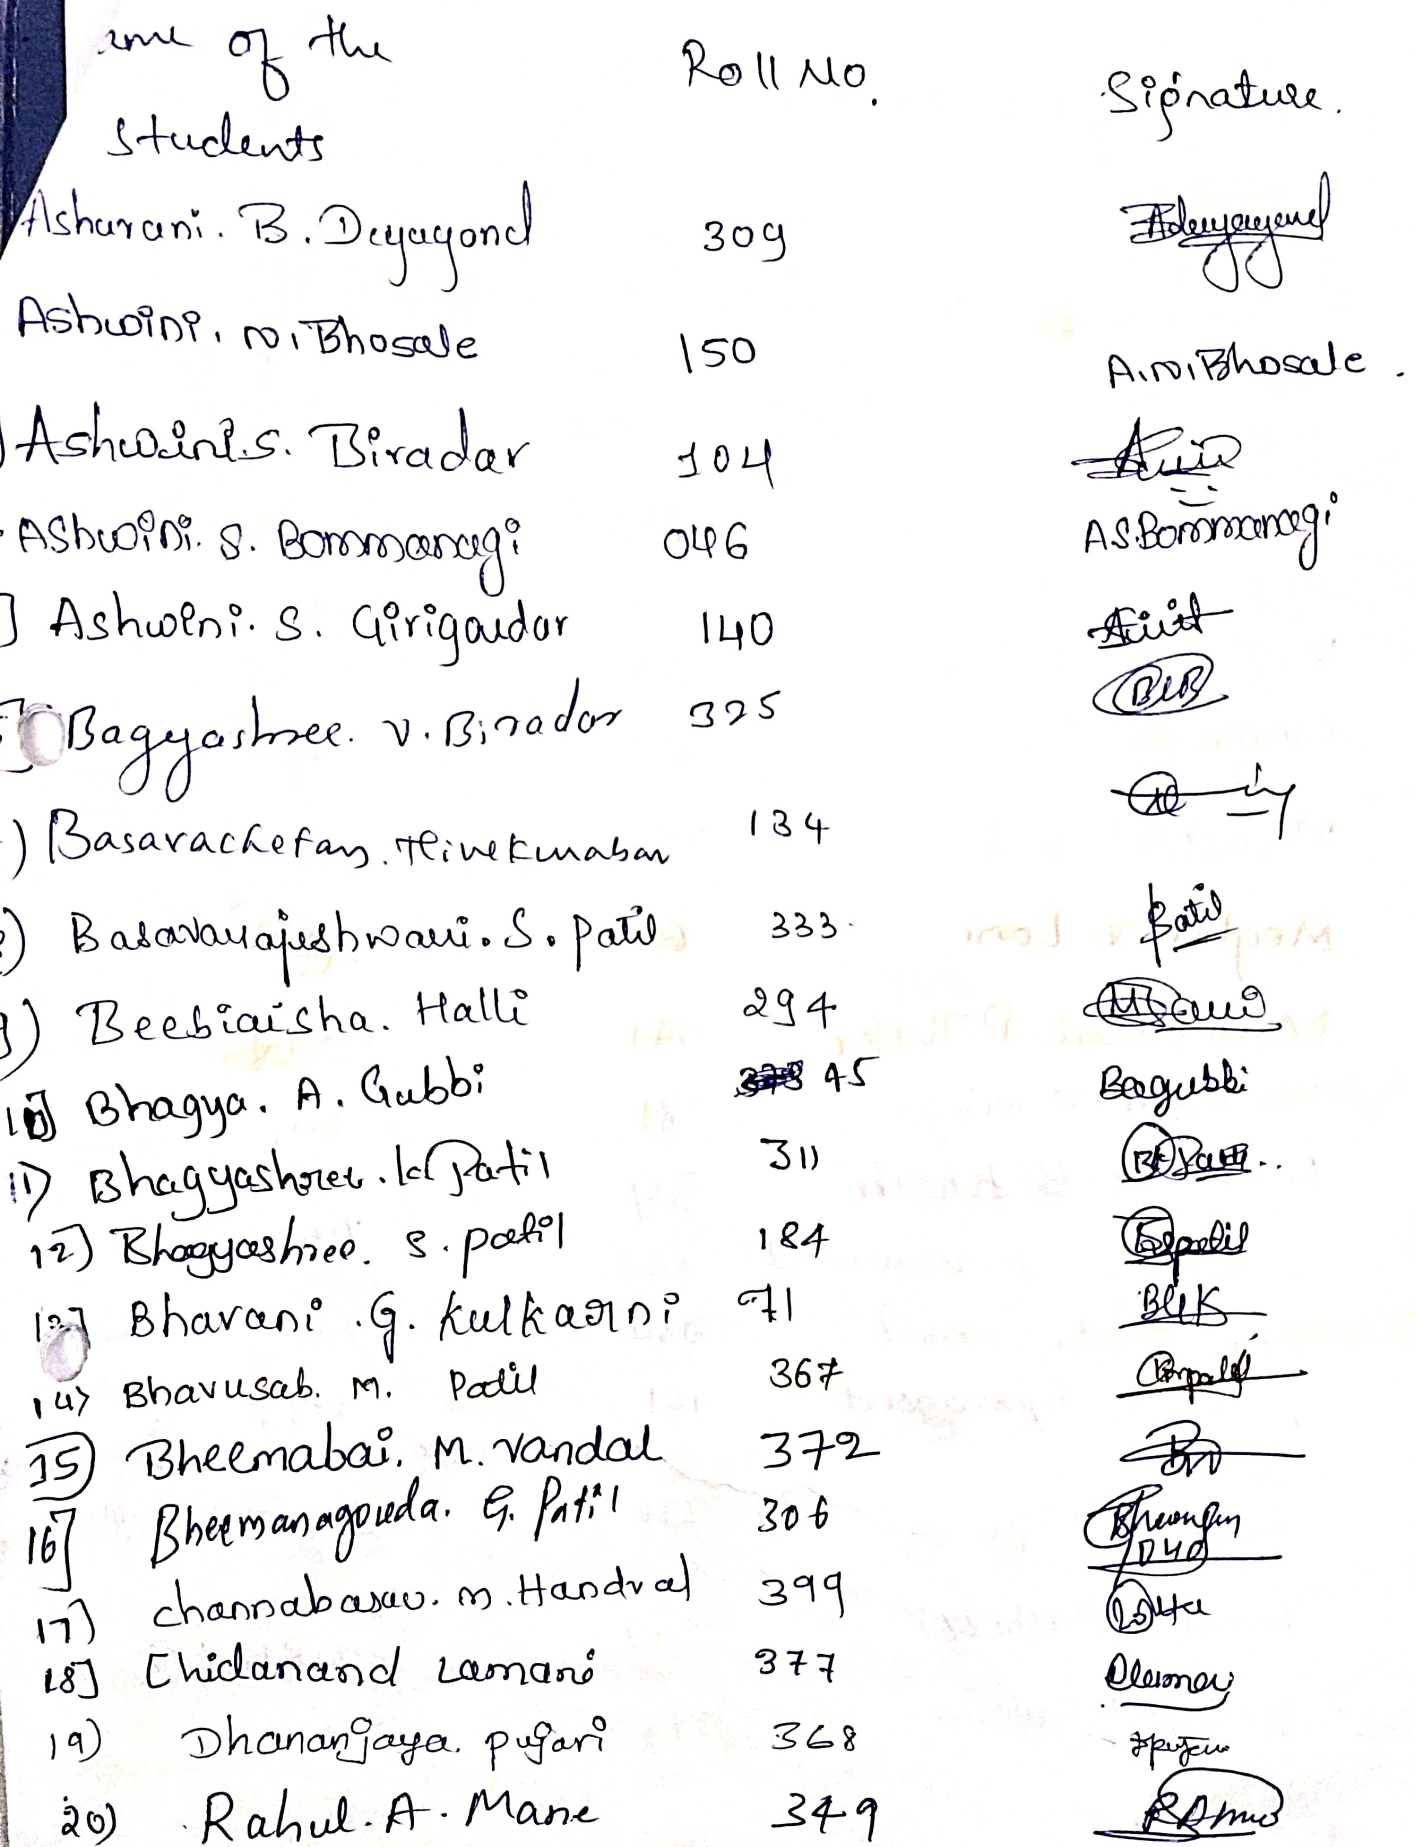 of the Roll No. Signature.
Students
Asharani. B. Deyagond 309
Ashwini. N. Bhosale 150 A.N.Bhosale.
Ashwini.S. Biradar 104
Ashwini. S. Bommanagi 046 A.S.Bommanagi
Ashwini. S. Girigoudar 140
Bagyashree. V. Birador 325
) 134
) Basavarajeshwari. S. Patil 333. Patil
9) Beebiaisha. Halli 294
10] Bhagya. A. Gubbi 45 Bagubbi
11) Bhagyashree. K Patil 311
12) Bhagyashree. S. patil 184 BSpatil
13] Bharani. G. Kulkarni 71 BGK
14) Bhavusab. M. Patil 367
15) Bheemabai. M. vandal 372
16] Bheemanagouda. G. Patil 306
17) channabasav. m. Handral 399
18] Chidanand Lamani 377
19) Dhananjaya. pujari 368
20) Rahul. A. Mane 349